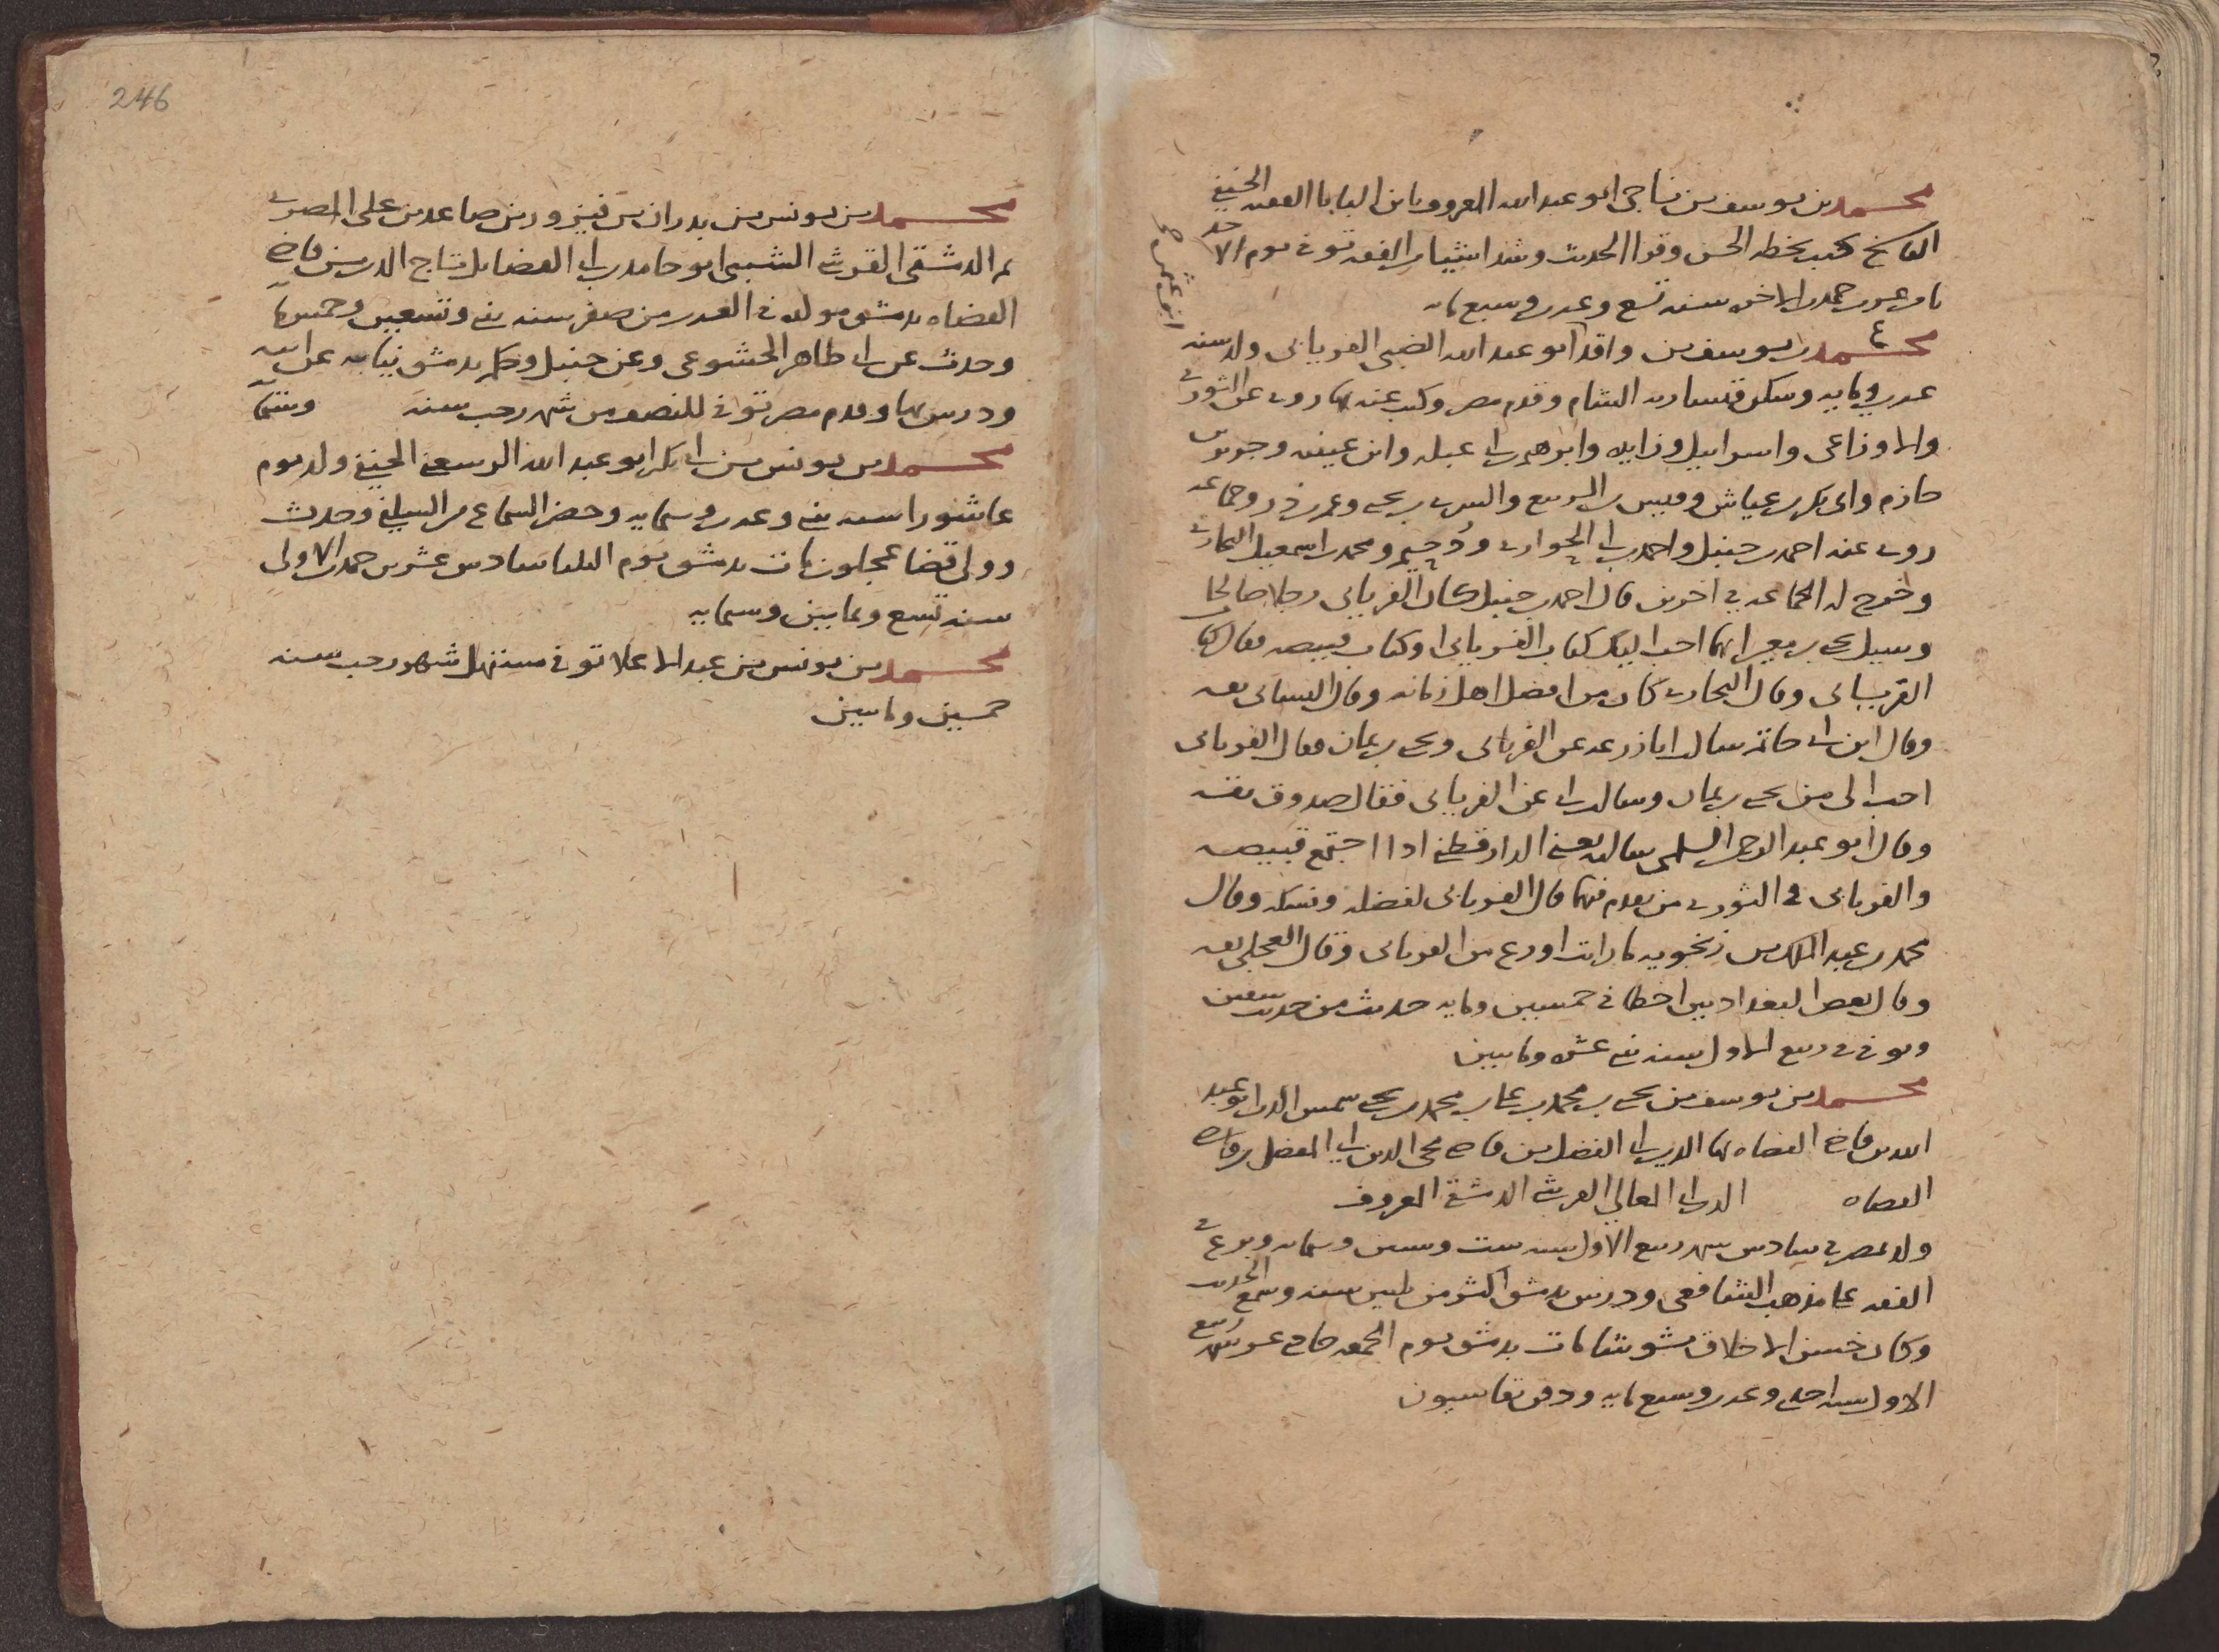 محمد بن يوسف بن ناجي ابو عبد الله المعروف بابن البابا الفقيه الحنفي
الناسخ كتب بخطه الحسن وقرا الحديث وشدا شيئا من الفقه توفى يوم الاحد
ثامن عشرين جمدى الاخره سنه تسع وعشرين وسبع مايه
ع
محمد بن يوسف بن واقد ابو عبد الله الضبي الفريابي ولد سنه
عشرين ومايه وسكن قيساريه الشام وقدم مصر وكتب عنه بها روى عن الثوري
والاوزاعي واسرائيل وزايده وابرهيم بن ابي عبله وابن عيينه وجرير بن
حازم وابي بكر بن عياش وقيس بن الربيع والسري بن يحيى وعمر بن ذر وجماعه
روى عنه احمد بن حنبل واحمد بن ابي الحواري ودحيم ومحمد بن اسمعيل البخاري
وخرج له الجماعه في اخرين قال احمد بن حنبل كان الفريابي رجلا صالحا
وسيل يحيى بن معين ايهما احب اليك كتاب الفريابي او كتاب قبيصه فقال كتاب
الفريابي وقال البخاري كان من افضل اهل زمانه وقال النسائي ثقه
وقال ابن ابي حاتم سالت ابا زرعه عن الفريابي ويحيى بن يمان فقال الفريابي
احب الي من يحيى بن يمان وسالت ابي عن الفريابي فقال صدوق ثقه
وقال ابو عبد الرحمن السلمي سالته يعني الدارقطني اذا اجتمع قبيصه
والفريابي في الثوري من يقدم منهما قال الفريابي لفضله ونسكه وقال
محمد بن عبد الملك بن زنجويه ما رايت اورع من الفريابي وقال العجلي ثقه
وقال بعض البغداديين اخطا في خمسين ومايه حديث من حديث سفين
وتوفى في ربيع الاول سنه ثنتي عشره ومايتين
محمد بن يوسف بن يحيى بن محمد بن علي بن محمد بن يحيى شمس الدين ابو عبد
الله بن قاضي القضاه بها الدين ابي الفضل بن قاضي محيي الدين ابي المفضل بن قاضي
القضاه الدين ابي المعالي القرشي الدمشقي المعروف
ولد بمصر في سادس شهر ربيع الاول سنه ست وستين وستمايه وبرع في
الفقه على مذهب الشافعي ودرس بدمشق اكثر من ثلثين سنه وسمع الحديث
وكان حسن الاخلاق مات بدمشق يوم الجمعه حادي عشر شهر ربيع
الاول سنه احدى وعشرين وسبع مايه ودفن بقاسيون
246
محمد بن يونس بن بدران بن فيروز بن صاعد بن علي المصري
ثم الدمشقي القرشي الشيبي ابو حامد بن ابي الفضايل تاج الدين بن قاضي
القضاه بدمشق مولده في العشرين من صفر سنه ثنتي وتسعين وخمس مايه
وحدث عن ابي طاهر الخشوعي وعن حنبل وحكم بدمشق نيابه عن ابيه
ودرس بها وقدم مصر توفى للنصف من شهر رجب سنه وستمايه
محمد بن يونس بن ابي بكر ابو عبد الله الرسعني الحنفي ولد يوم
عاشورا سنه ثنتي وعشرين وستمايه وحضر السماع من السيلفي وحدث
وولي قضا عجلون مات بدمشق يوم الثلثا سادس عشرين جمدى الاولى
سنه تسع وثمانين وستمايه
محمد بن يونس بن عبد الاعلا توفى مستهل شهر رجب سنه
خمسين ومايتين